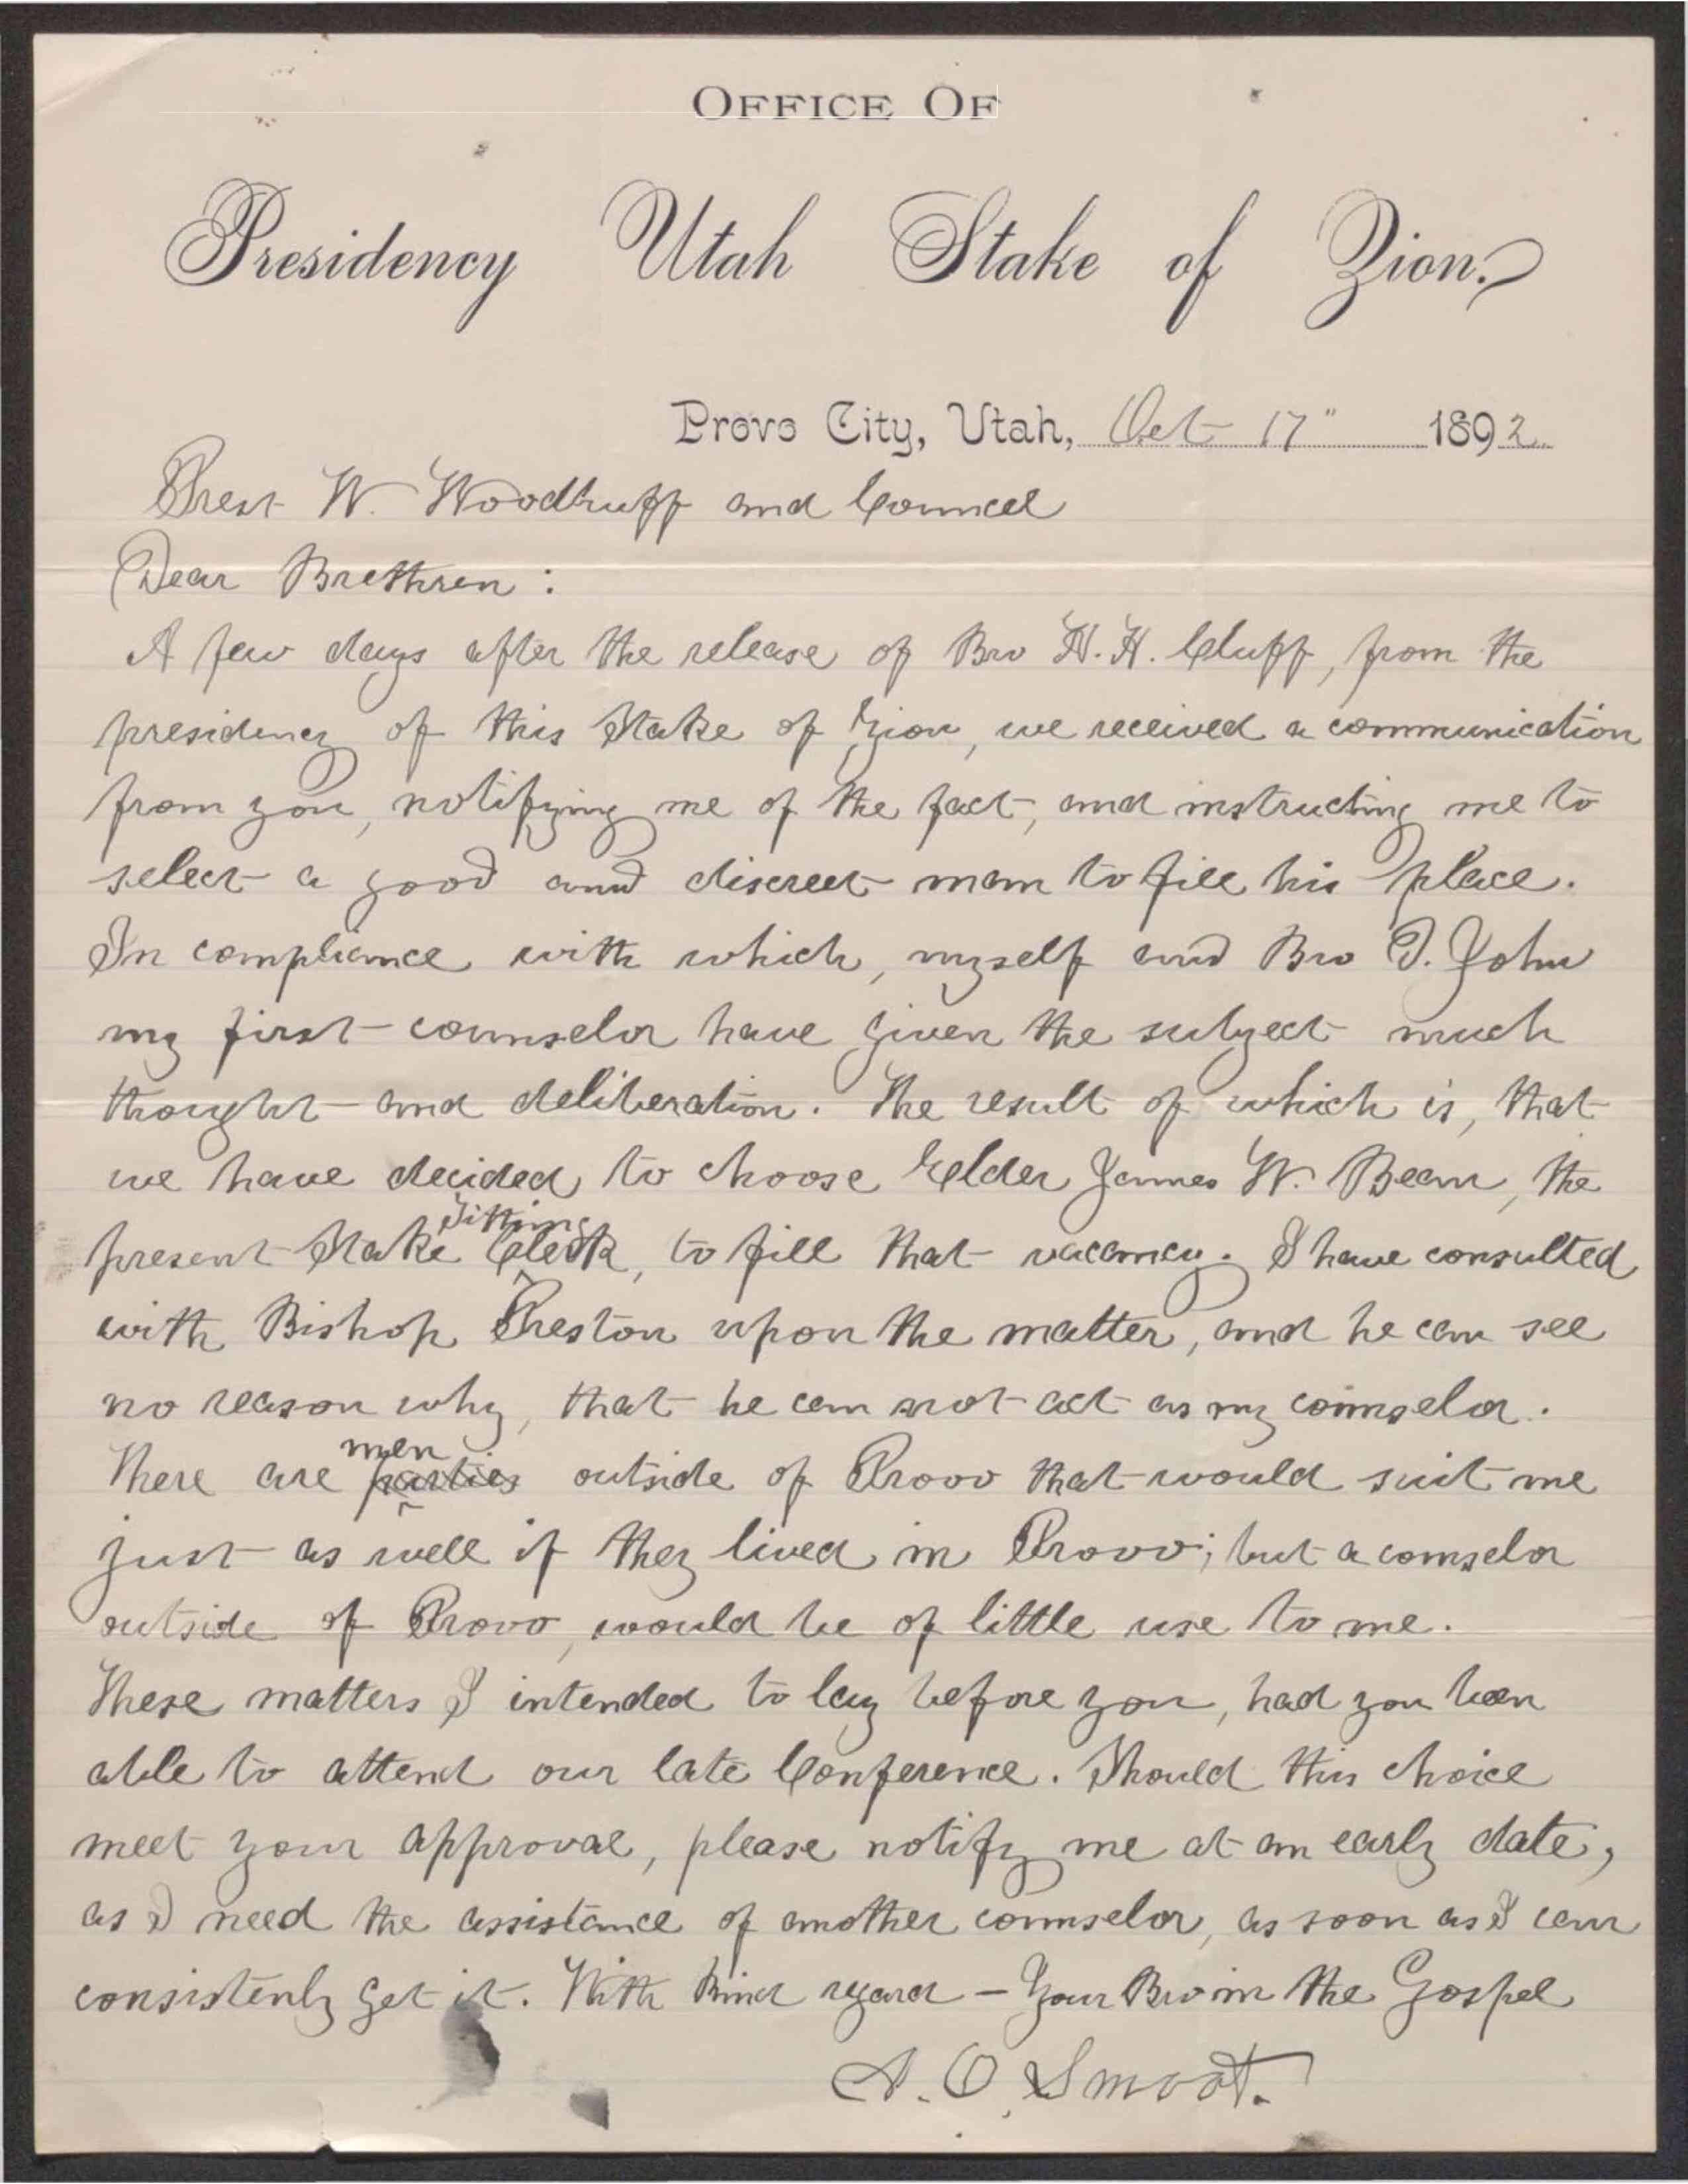 OFFICE OF
Presidency Utah Stake of Zion.
Provo City, Utah, Oct 17" 1892
Prest W. Woodruff and Councel
Dear Brethren :
A few days after the release of Bro H. H. Cluff, from the
presidency of this Stake of Zion, we received a communication
from you, notifying me of the fact, and instructing me to
select a good and discreet man to fill his place.
In compliance with which, myself and Bro D. John
my first counselor have given the subject much
thought and deliberation. The result of which is, that
we have decided to choose Elder James W. Bean, the
present Stake Tithing Clerk, to fill that vacancy. I have consulted
with Bishop Preston upon the matter, and he can see
no reason why, that he can not act as my counselor.
There are parties men outside of Provo that would suit me
just as well if they lived in Provo; but a counselor
outside of Provo, would be of little use to me.
These matters I intended to lay before you, had you been
able to attend our late Conference. Should this choice
meet your approval, please notify me at an early date,
as I need the assistance of another counselor, as soon as I can
consistenly get it. With kind regard – Your Bro in the Gospel
A. O. Smoot.